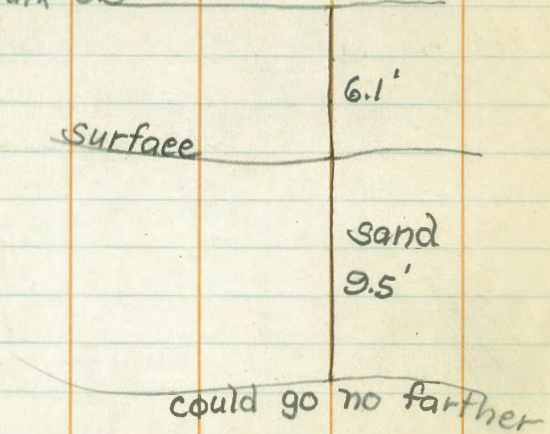 6.1'
surface
sand
9.5'
could go no farther